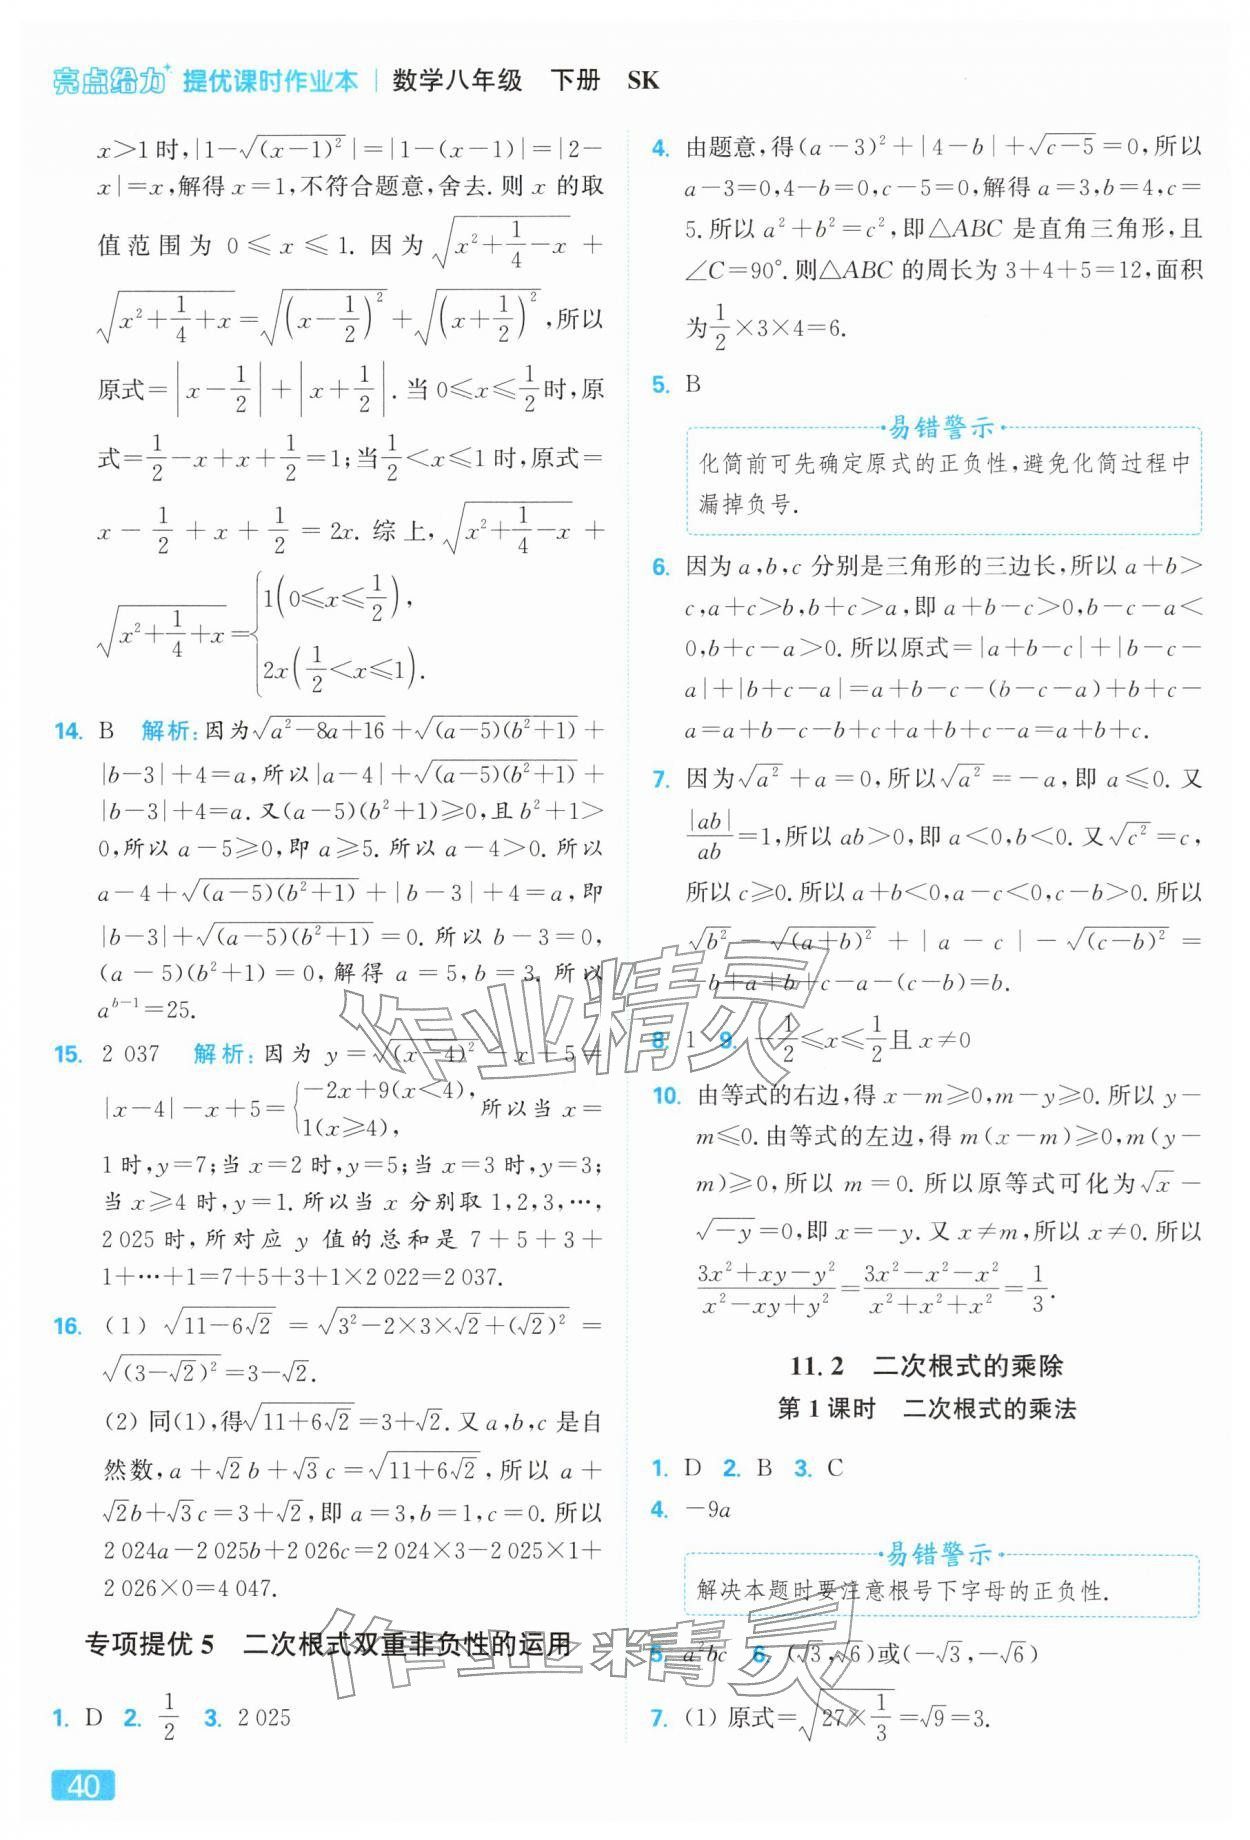 亮点给力 提优课时作业本 | 数学八年级 下册 SK
x>1时,|1-√((x-1)²)|=|1-(x-1)|=|2-
x|=x,解得x=1,不符合题意,舍去.则x的取
值范围为0≤x≤1.因为√(x²+1/4-x)+
√(x²+1/4+x)=√((x-1/2)²)+√((x+1/2)²),所以
原式=|x-1/2|+|x+1/2|.当0≤x≤1/2时,原
式=1/2-x+x+1/2=1;当1/2<x≤1时,原式=
x-1/2+x+1/2=2x.综上,√(x²+1/4-x)+
√(x²+1/4+x)={1(0≤x≤1/2),
2x(1/2<x≤1).
14. B 解析:因为√(a²-8a+16)+√((a-5)(b²+1))+
|b-3|+4=a,所以|a-4|+√((a-5)(b²+1))+
|b-3|+4=a.又(a-5)(b²+1)≥0,且b²+1>
0,所以a-5≥0,即a≥5.所以a-4>0.所以
a-4+√((a-5)(b²+1))+|b-3|+4=a,即
|b-3|+√((a-5)(b²+1))=0.所以b-3=0,
(a-5)(b²+1)=0,解得a=5,b=3.所以
a^(b-1)=25.
15. 2 037 解析:因为y=√((x-4)²)-x+5=
|x-4|-x+5={-2x+9(x<4),
1(x≥4), 所以当x=
1时,y=7;当x=2时,y=5;当x=3时,y=3;
当x≥4时,y=1.所以当x分别取1,2,3,…,
2 025时,所对应y值的总和是7+5+3+
1+…+1=7+5+3+1×2 022=2 037.
16. (1) √(11-6√2)=√(3²-2×3×√2+(√2)²)=
√((3-√2)²)=3-√2.
(2) 同(1),得√(11+6√2)=3+√2.又a,b,c是自
然数,a+√2b+√3c=√(11+6√2),所以a+
√2b+√3c=3+√2,即a=3,b=1,c=0.所以
2 024a-2 025b+2 026c=2 024×3-2 025×1+
2 026×0=4 047.
专项提优5 二次根式双重非负性的运用
1. D 2. 1/2 3. 2 025
4. 由题意,得(a-3)²+|4-b|+√(c-5)=0,所以
a-3=0,4-b=0,c-5=0,解得a=3,b=4,c=
5.所以a²+b²=c²,即△ABC是直角三角形,且
∠C=90°.则△ABC的周长为3+4+5=12,面积
为1/2×3×4=6.
5. B
·易错警示·
化简前可先确定原式的正负性,避免化简过程中
漏掉负号.
6. 因为a,b,c分别是三角形的三边长,所以a+b>
c,a+c>b,b+c>a,即a+b-c>0,b-c-a<
0,b+c-a>0.所以原式=|a+b-c|+|b-c-
a|+|b+c-a|=a+b-c-(b-c-a)+b+c-
a=a+b-c-b+c+a+b+c-a=a+b+c.
7. 因为√(a²)+a=0,所以√(a²)=-a,即a≤0.又
|ab|/ab=1,所以ab>0,即a<0,b<0.又√(c²)=c,
所以c≥0.所以a+b<0,a-c<0,c-b>0.所以
√(b²)-√((a+b)²)+|a-c|-√((c-b)²)=
-b+a+b+c-a-(c-b)=b.
8. 1 9. -1/2≤x≤1/2且x≠0
10. 由等式的右边,得x-m≥0,m-y≥0.所以y-
m≤0.由等式的左边,得m(x-m)≥0,m(y-
m)≥0,所以m=0.所以原等式可化为√x-
√(-y)=0,即x=-y.又x≠m,所以x≠0.所以
(3x²+xy-y²)/(x²-xy+y²)=(3x²-x²-x²)/(x²+x²+x²)=1/3.
11.2 二次根式的乘除
第1课时 二次根式的乘法
1. D 2. B 3. C
4. -9a
·易错警示·
解决本题时要注意根号下字母的正负性.
5. a²bc 6. (√3,√6)或(-√3,-√6)
7. (1) 原式=√(27×1/3)=√9=3.
40
作业精灵
作业精灵